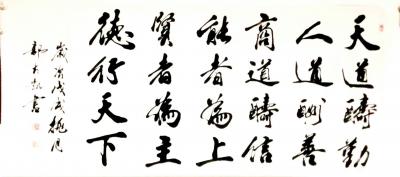 天道醻勤
人道酬善
商道醻信
能者為上
賢者為主
德行天下
歲次戊戌桃月
郭書